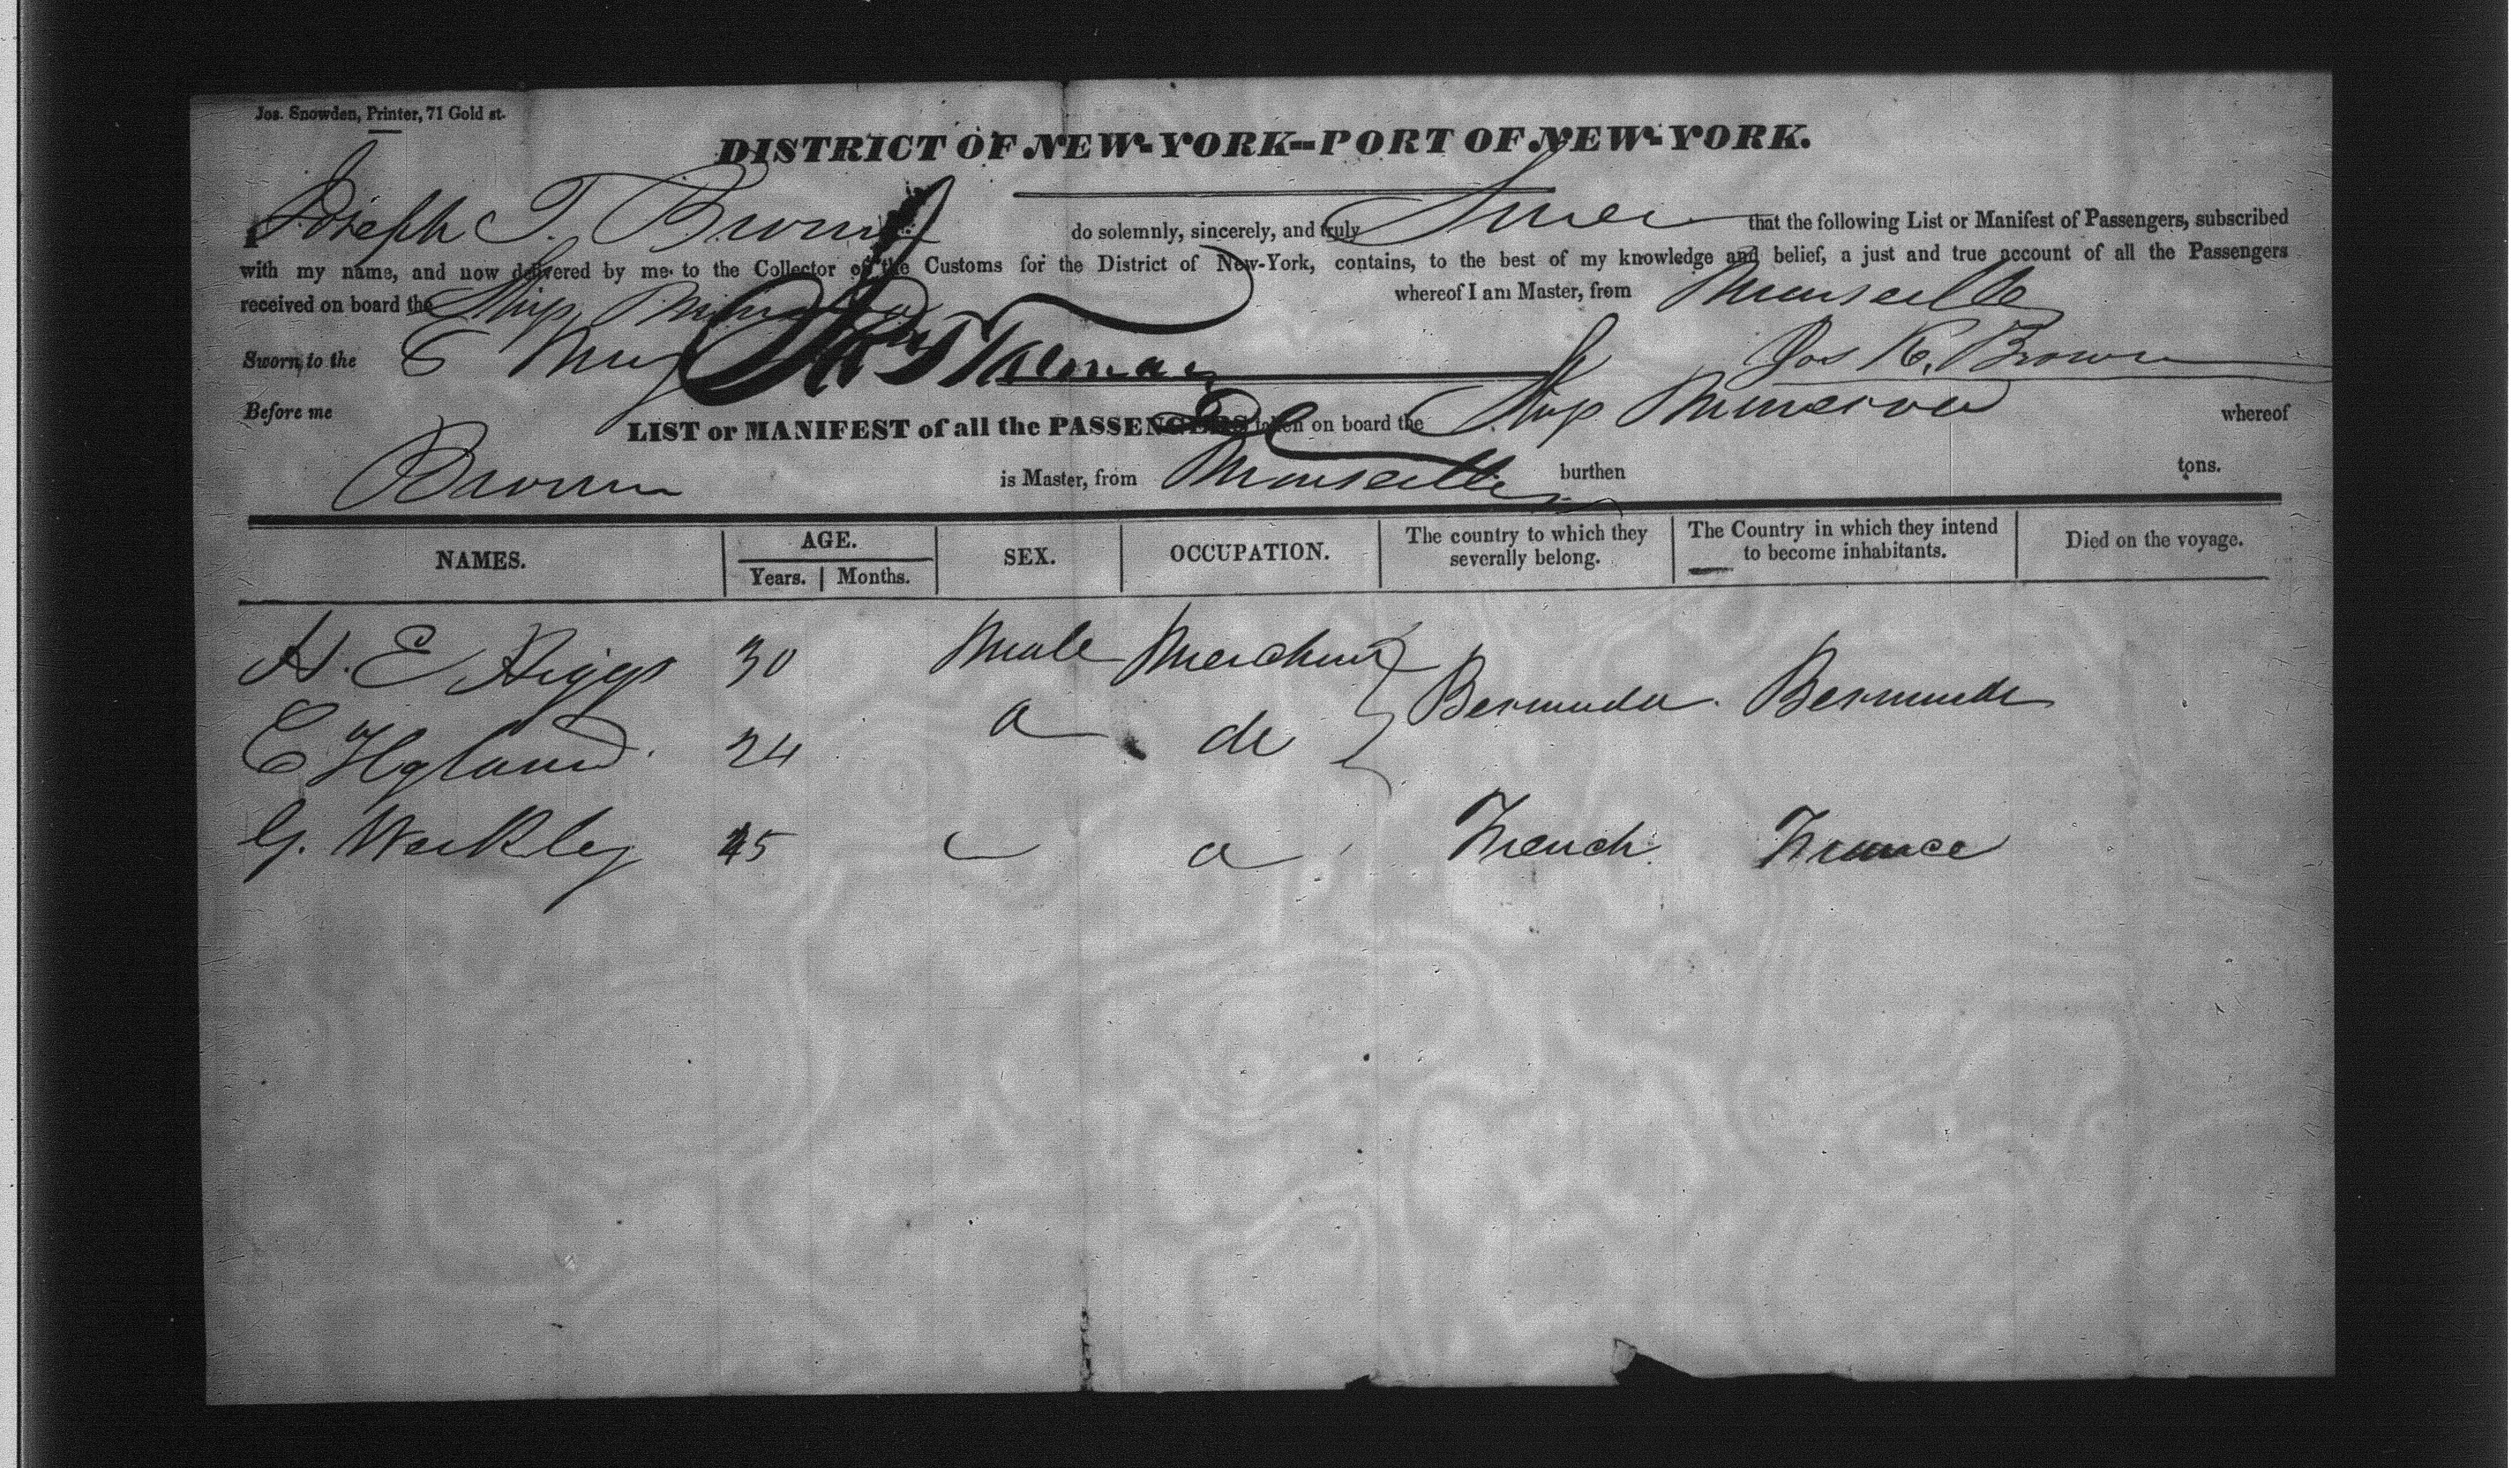 Jos. Snowden, Printer, 71 Gold st.
DISTRICT OF NEW-YORK--PORT OF NEW-YORK.
I Joseph T. Brown do solemnly, sincerely, and truly Swear that the following List or Manifest of Passengers, subscribed
with my name, and now delivered by me to the Collector of the Customs for the District of New-York, contains, to the best of my knowledge and belief, a just and true account of all the Passengers
received on board the Ship Minerva whereof I am Master, from Marseille
Sworn to the 6 May Jos K. Brown
Before me
LIST or MANIFEST of all the PASSENGERS taken on board the Ship Minerva whereof
Brown is Master, from Marseilles burthen tons.
NAMES. AGE. Years. Months. SEX. OCCUPATION. The country to which they severally belong. The Country in which they intend to become inhabitants. Died on the voyage.
H. E Higgs 30 Male Merchant
Bermuda. Bermuda
C Hyland. 24 do
G. Weckley 45 French. France